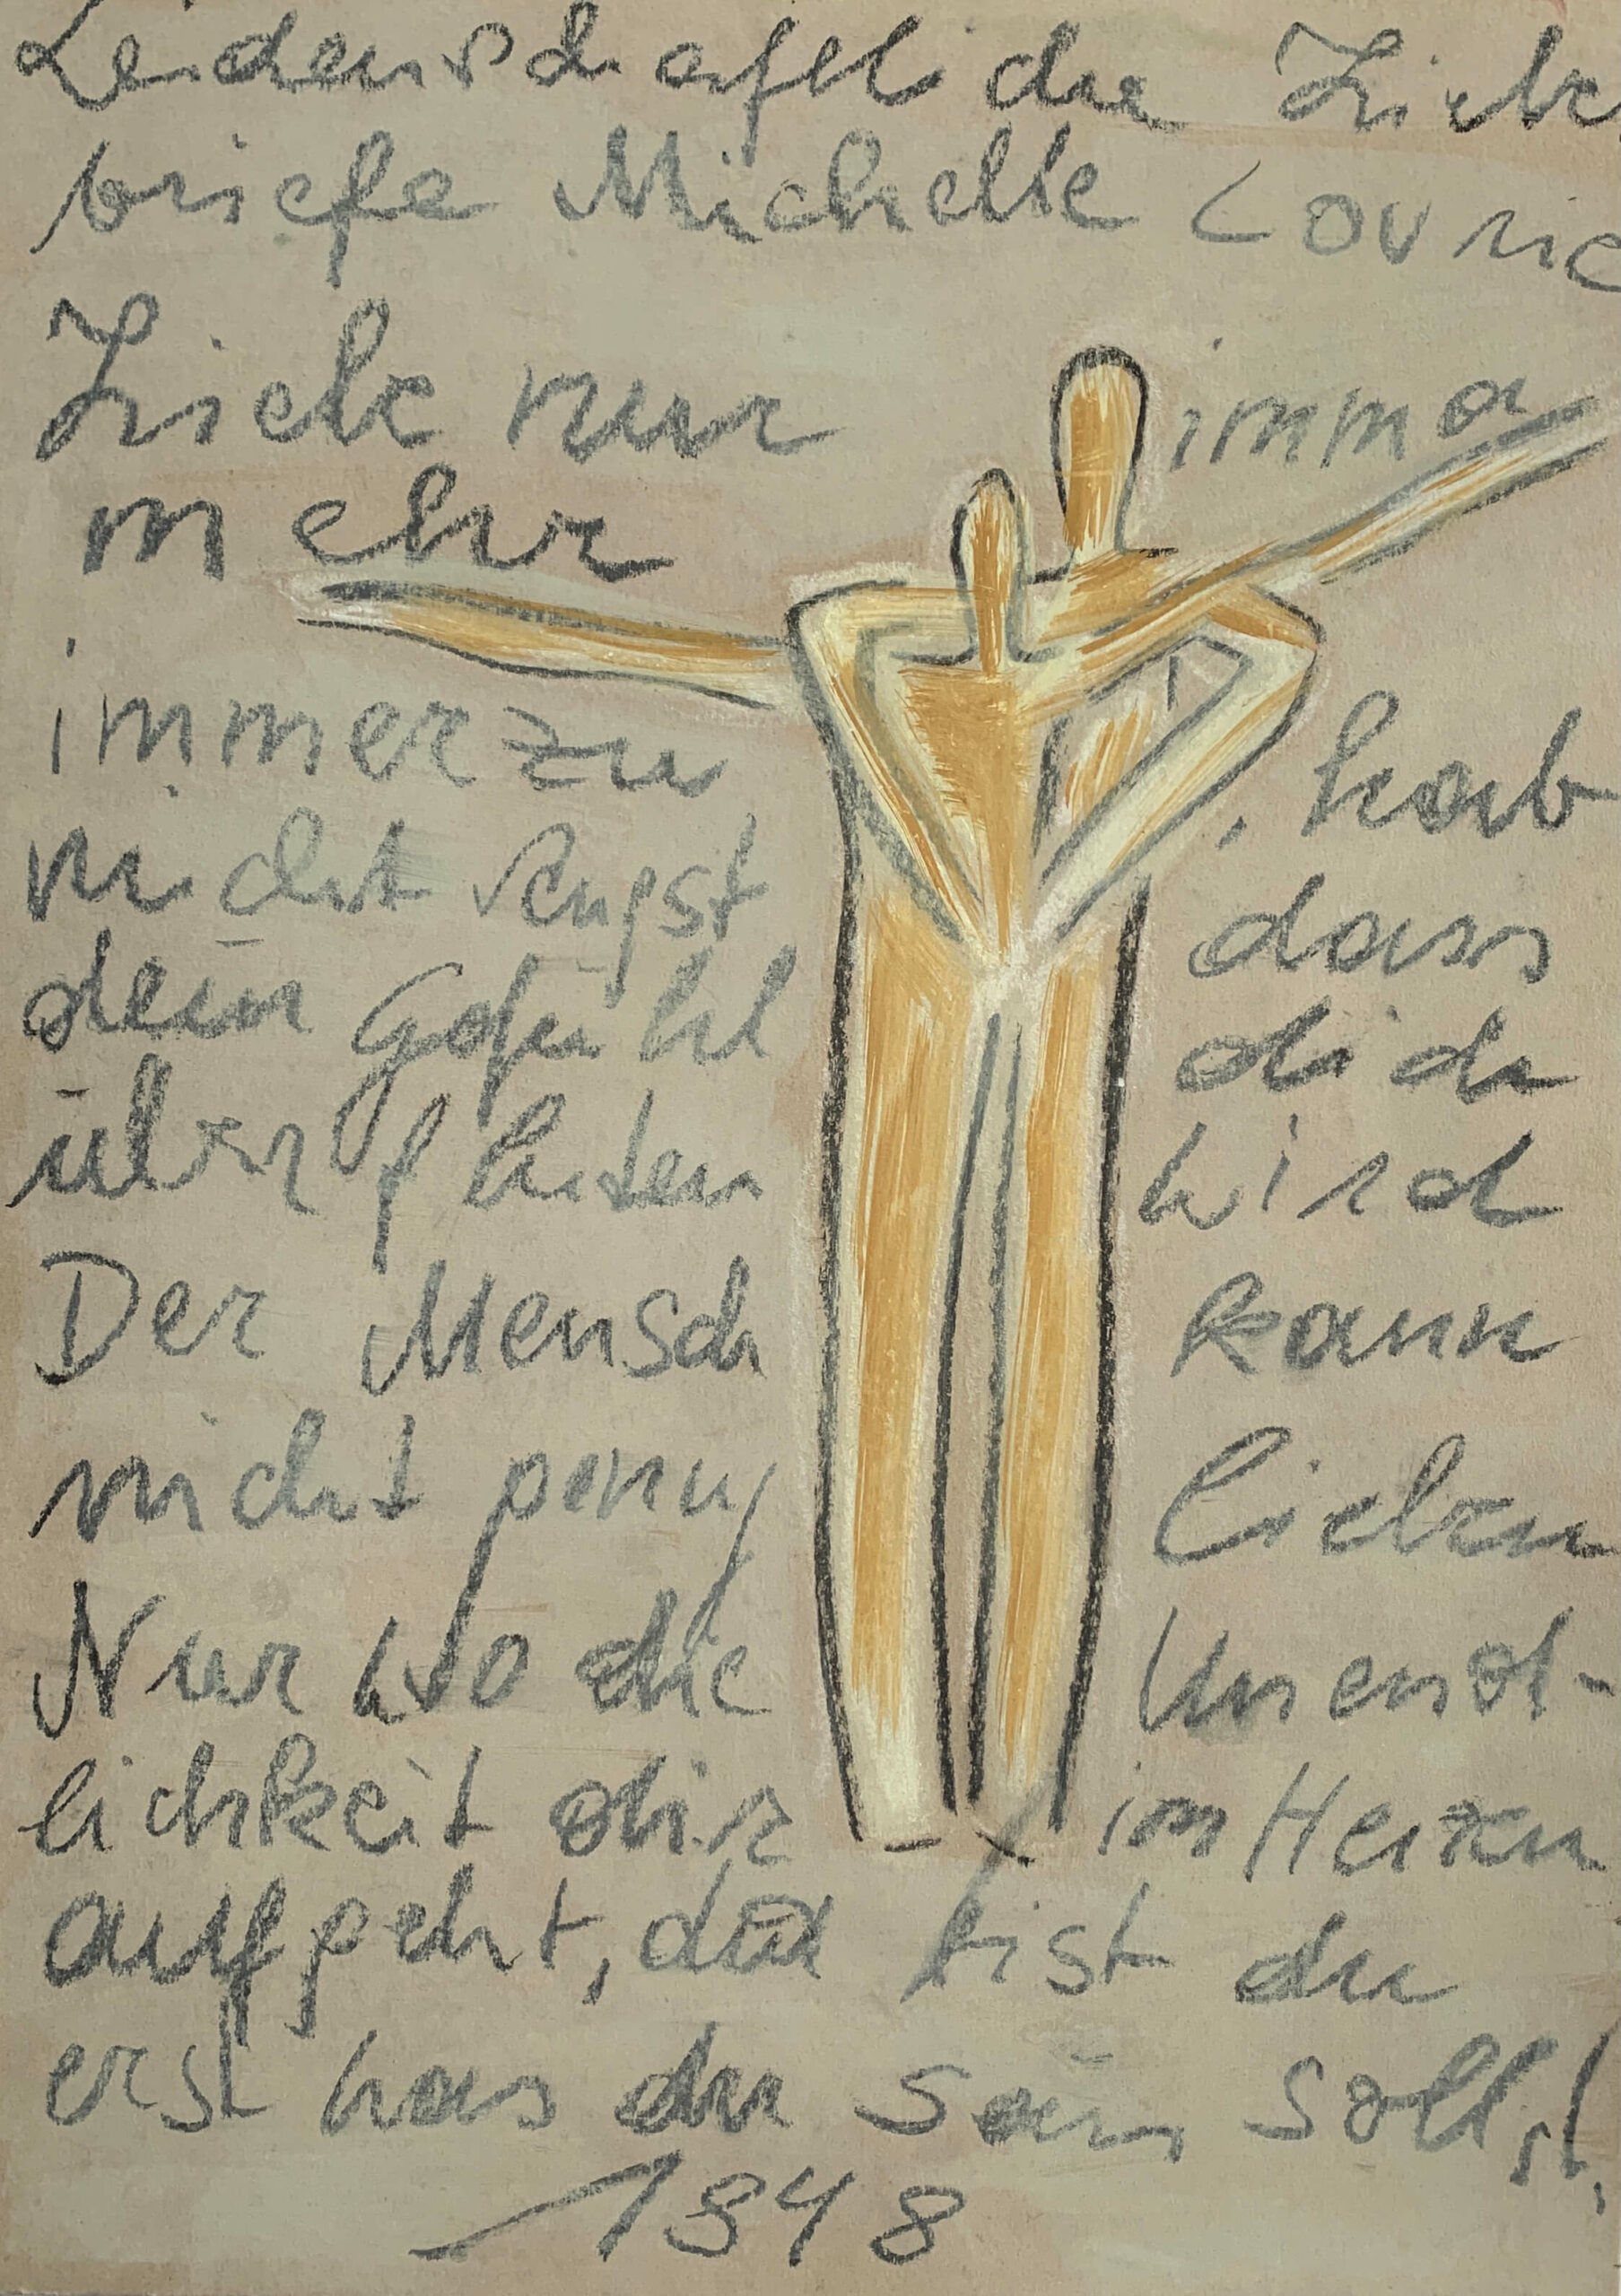 Leidenschaftliche Liebe
briefe Michelle Lovric
Liebe nur imma
mehr
immerzu, hab
nicht Angst dass
dein Gefühl dich
überfluten wird
Der Mensch kann
nicht genug lieben
Nur wo die Unend-
lichkeit dir im Herzen
aufgeht, da bist du
erst was du sein sollst.
1848